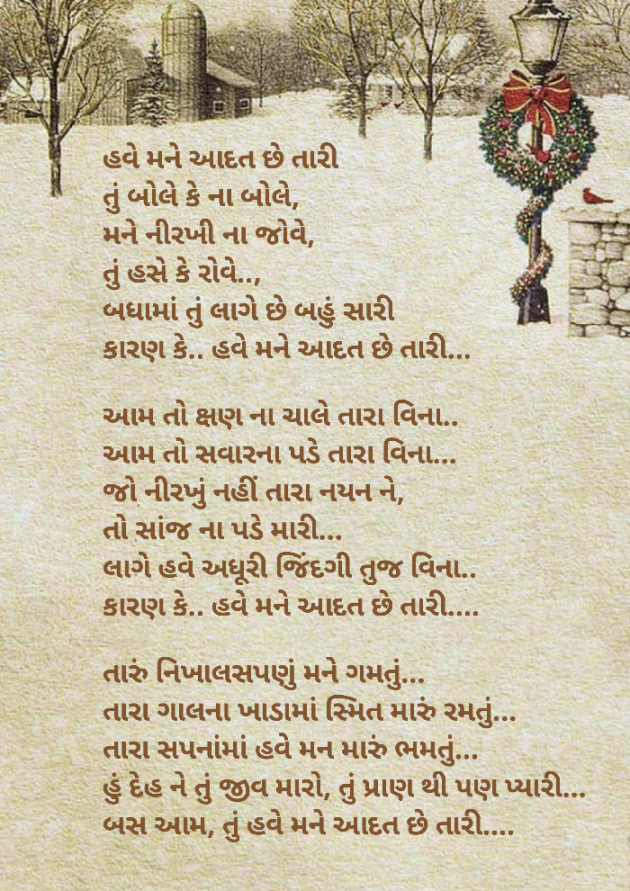 હવે મને આદત છે તારી
તું બોલે કે ના બોલે,
મને નીરખી ના જોવે,
તું હસે કે રોવે..,
બધામાં તું લાગે છે બહું સારી
કારણ કે.. હવે મને આદત છે તારી...
આમ તો ક્ષણ ના ચાલે તારા વિના..
આમ તો સવારના પડે તારા વિના...
જો નીરખું નહીં તારા નયન ને,
તો સાંજ ના પડે મારી...
લાગે હવે અધૂરી જિંદગી તુજ વિના..
કારણ કે.. હવે મને આદત છે તારી....
તારું નિખાલસપણું મને ગમતું...
તારા ગાલના ખાડામાં સ્મિત મારું રમતું...
તારા સપનાંમાં હવે મન મારું ભમતું...
હું દેહ ને તું જીવ મારો, તું પ્રાણ થી પણ પ્યારી...
બસ આમ, તું હવે મને આદત છે તારી....